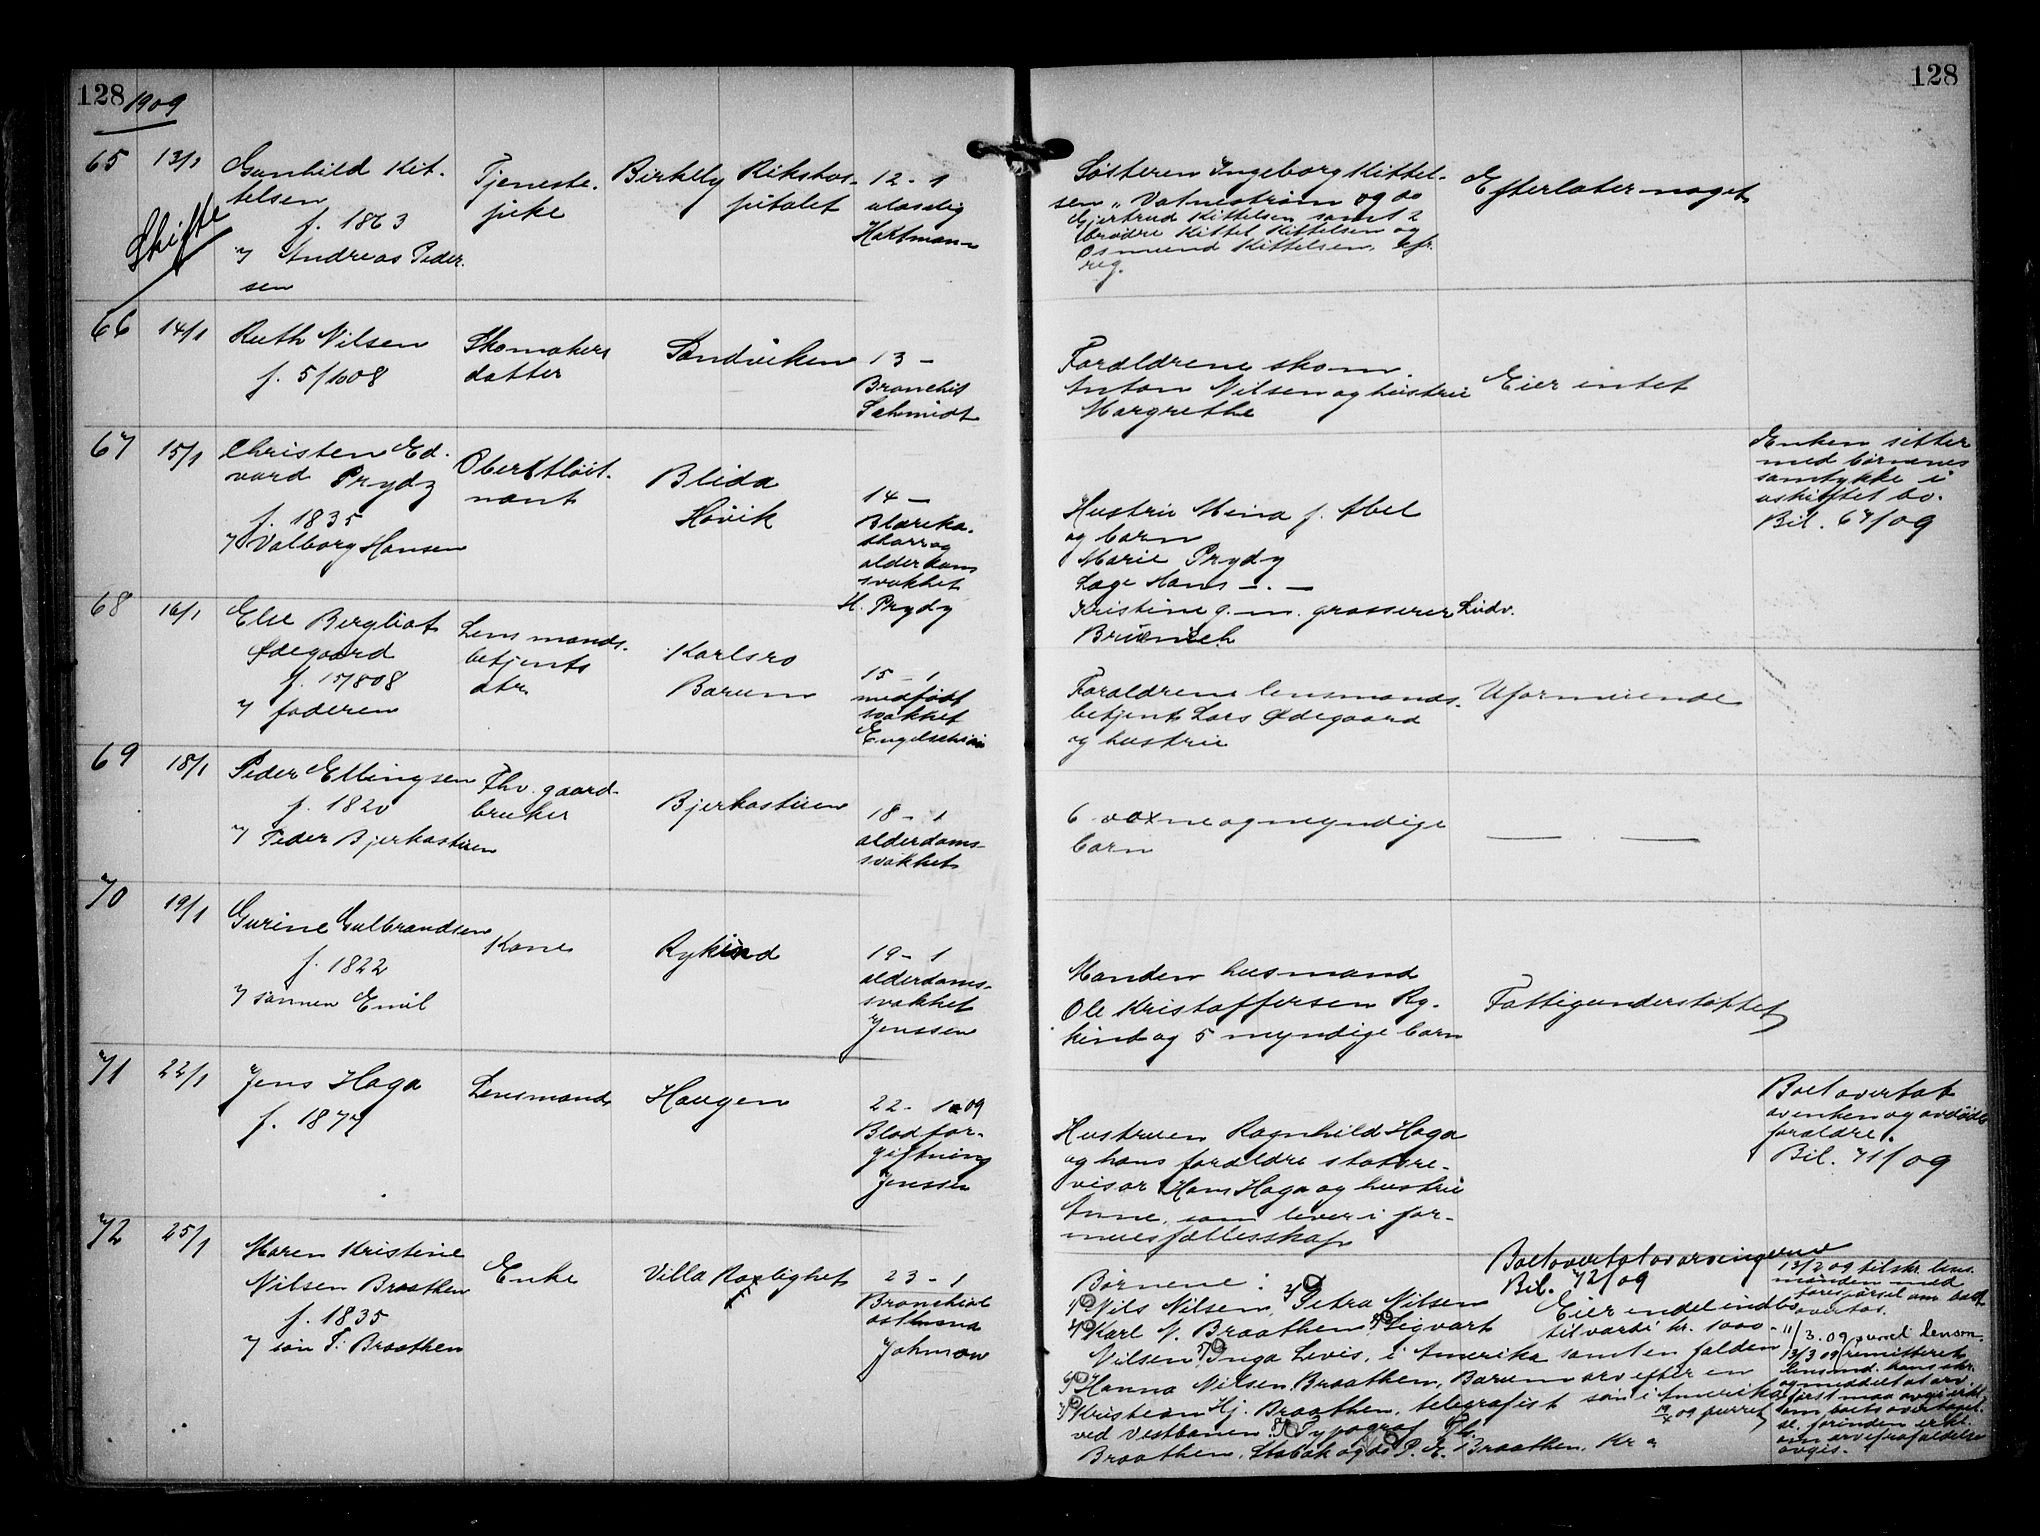 128
1909
128
65
13/1
Gunhild Kit-
telsen
f. 1863
v/ Andreas Peder-
sen
Skifte
Tjeneste-
pike
Birkely
Rikshos-
pitalet
12 - 1
Hartmann
Søsteren Ingeborg Kittel-
sen, Vatnestrøm og do
Gjertrud Kittelsen samt 2
brødre Kittel Kittelsen og
Osmund Kittelsen, efr.
reg.
Efterlater noget
66
14/1
Ruth Nilsen
f. 5/10 08
Skomakers
datter
Sandviken
13 -
Bronchit
Schmidt
Forældrene skom.
Anton Nilsen og hustru
Margrethe
Eier intet
67
15/1
Christen Ed-
vard Prydz
f. 1835
v/ Valborg Hansen
Oberstløit-
nant
Blida
Høvik
14 -
Blæreka-
tharr og
alderdoms
svakhet
H. Prydz
Hustru Mina f. Abel
og børn
Marie Prydz
Læge Hans - . -
Kristine g. m. grosserer Ludv.
Bruenech
Enken sitter
med børnenes
samtykke i
uskiftet bo.
Bil. 67/09
68
16/1
Else Bergliot
Ødegaard
f. 15/8 08
v/ faderen
Lensmands-
betjents
dtr.
Karlsro
Bærum
15 - 1
medfødt
svakhet
Engelschiøn
Forældrene lensmands-
betjent Lars Ødegaard
og hustru
Uformuende
69
18/1
Peder Ellingsen
f. 1820
v/ Peder Bjerkastuen
Fhv. gaard-
bruker
Bjerkastuen
18 - 1
alderdoms-
svakhet
6 voxne og myndige
børn
— . —
70
19/1
Gurine Gulbrandsen
f. 1822
v/ sønnen Emil
Kone
Rykind
19 - 1
alderdoms-
svakhet
Jenssen
Manden husmand
Ole Kristoffersen Ry-
kind og 5 myndige børn
Fattigunderstøttet
71
22/1
Jens Haga
f. 1877
Lensmand
Haugen
22 - 1 09
Blodfor-
giftning
Jenssen
Hustruen Ragnhild Haga
og hans forældre statsre-
visor Hans Haga og hustru
Anne, som lever i for-
muesfællesskap
Boet overtat
av enken og avdødes
forældre.
Bil. 71/09
72
25/1
Maren Kristine
Nilsen Braathen
f. 1835
v/ søn T. Braathen
Enke
Villa Rolighet
23 - 1
Bronchial
asthma
Johnson
Børnene:
1) Nils Nilsen, 2) Petra Nilsen
3) Karl N. Braathen, 4) Sigvart
Nilsen, 5) Inga Levis, i Amerika samt en falden
6) Hanna Nilsen Braathen, Bærum arv efter en
7) Kristian Hj. Braathen, telegrafist søn i Amerika
ved Vestbanen. 8) Typograf Th.
Braathen, Stabæk og do P. E. Braathen, Kr a
Boet overtat av arvingerne
Bil. 72/09
Eier endel indbo
til værdi kr. 1000-
13/2 09 tilskr. lens-
manden med
forespørsel om boet
overtas.
11/3. 09 purret lensm.
13/3 09 remitteret
lensmd. hans skr.
og meddelt at arv.
først maa avgi erkl.
om boets overtagel-
se, forinden erkl.
om arvefrafaldelse
avgis.
19/4 09 purret